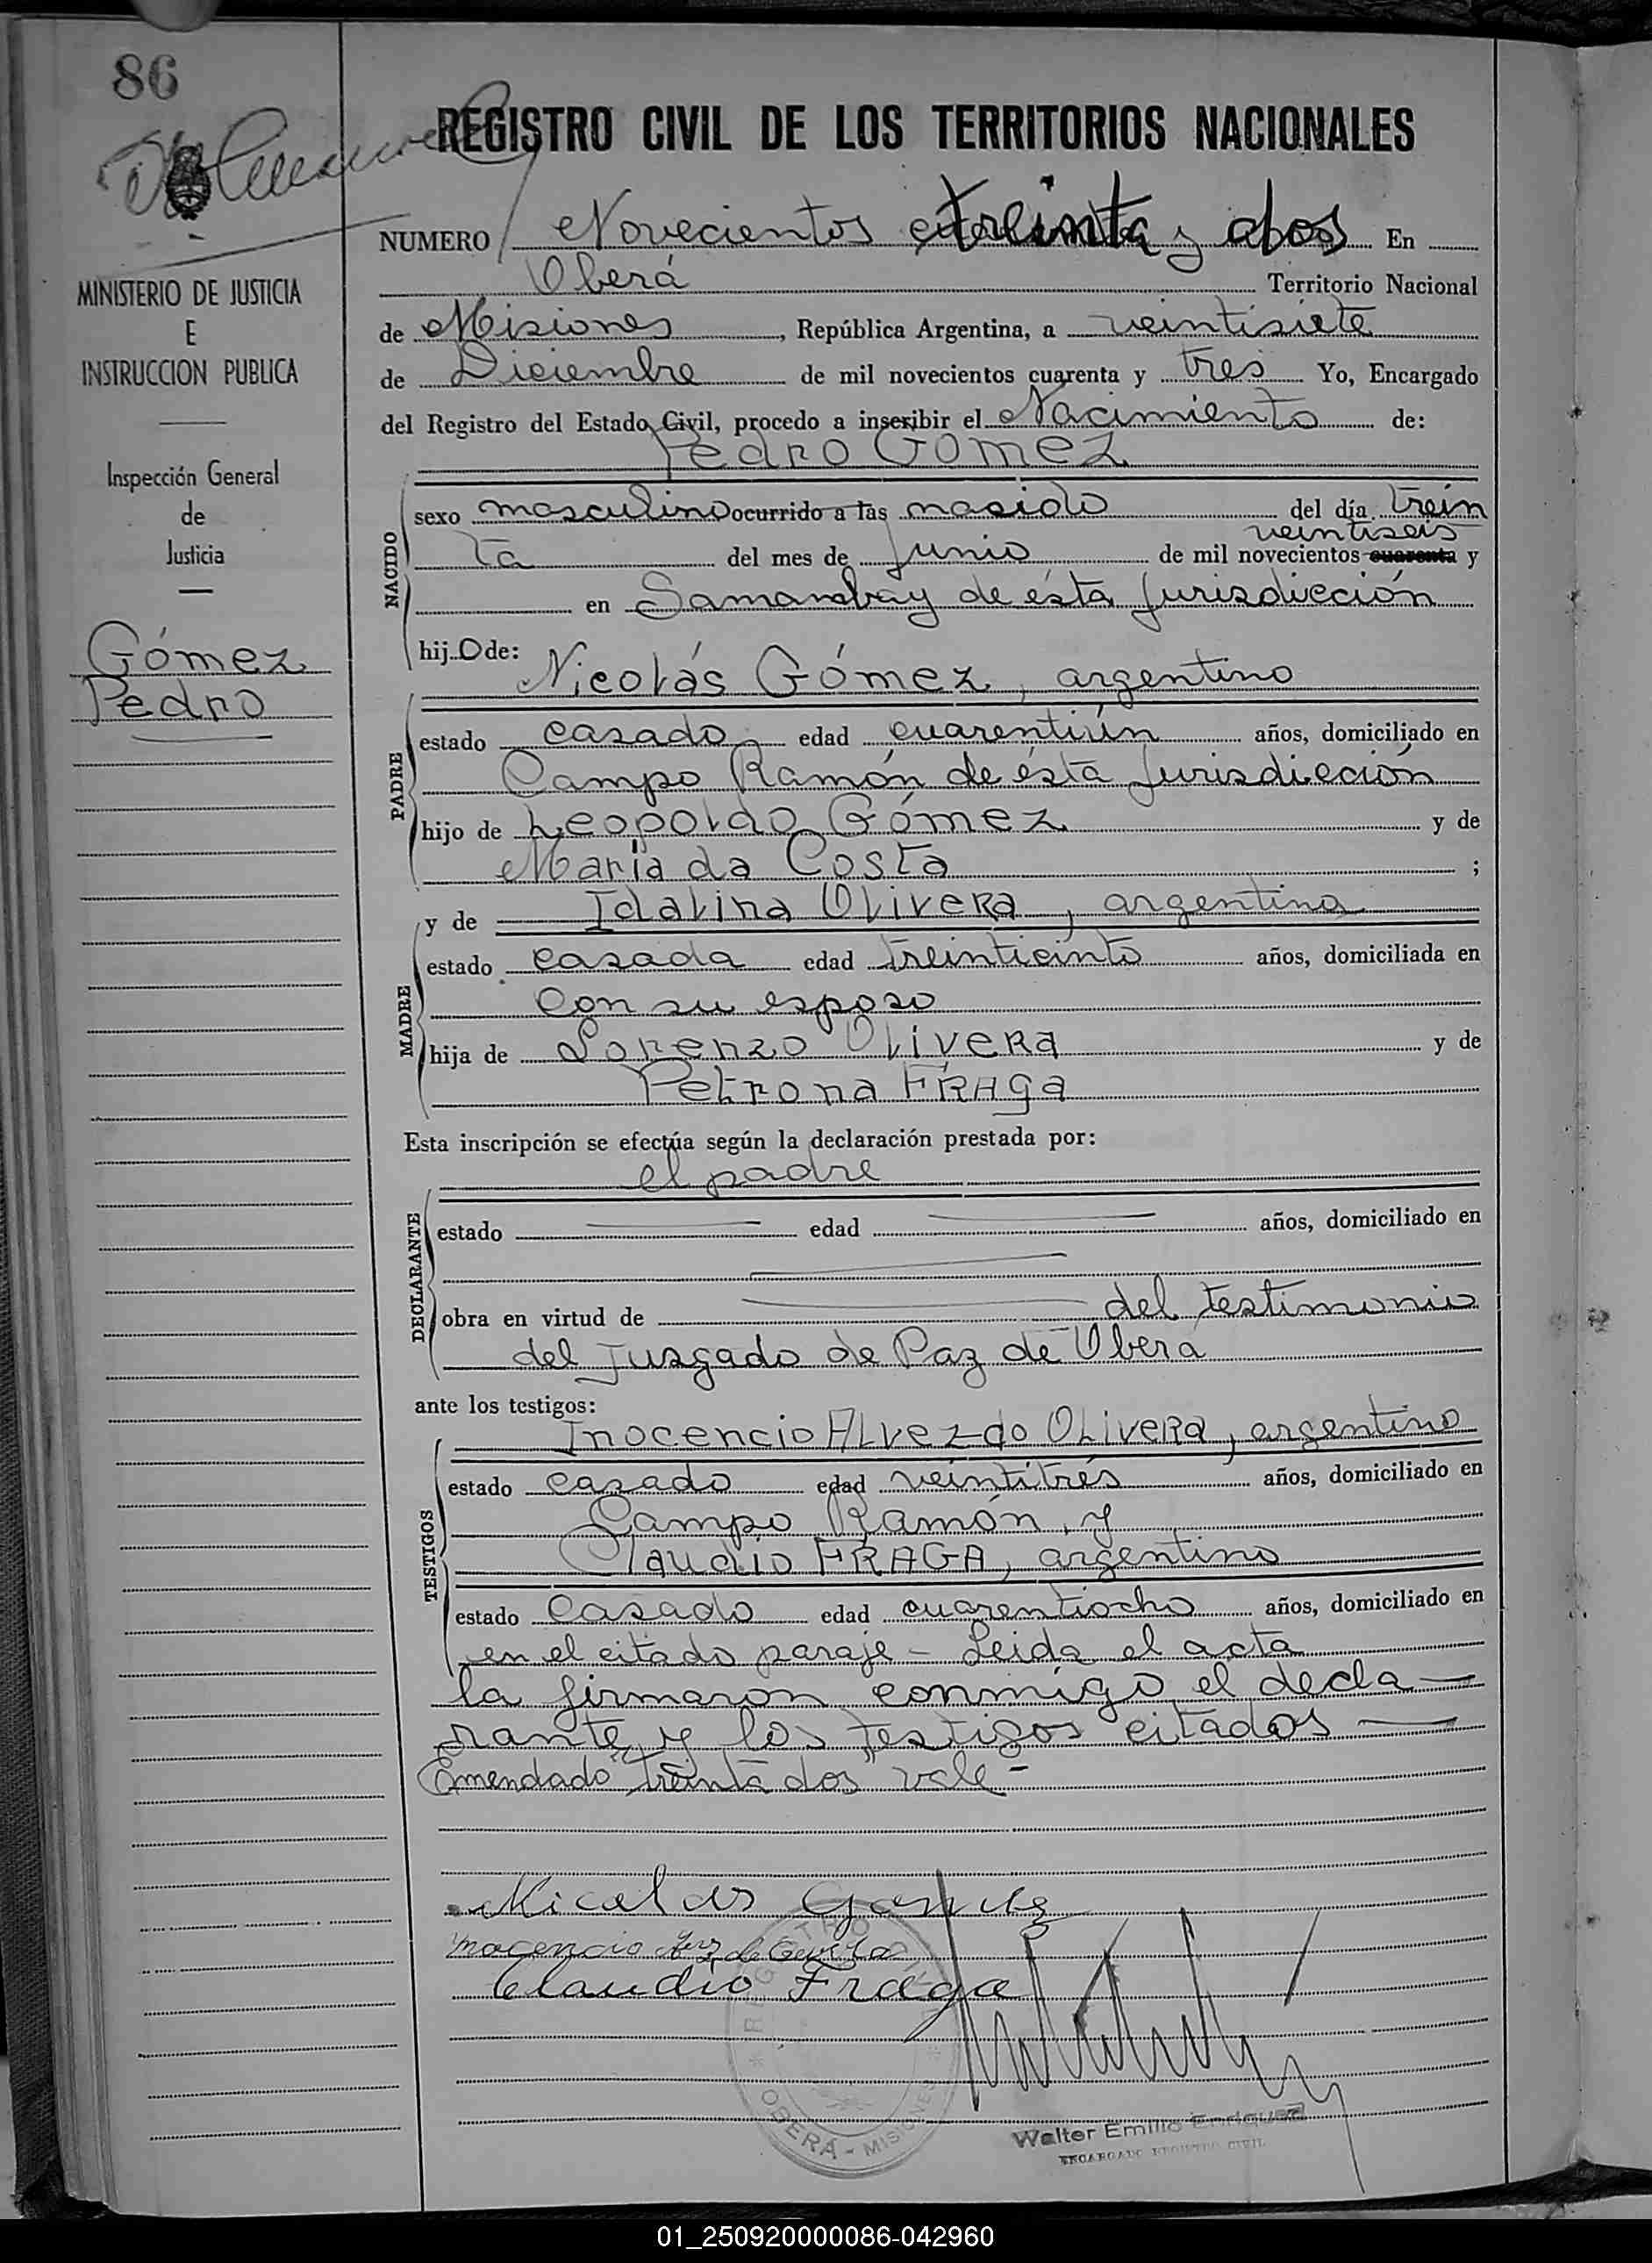 86
REGISTRO CIVIL DE LOS TERRITORIOS NACIONALES
NUMERO Novecientos treinta y dos En
Oberá Territorio Nacional
de Misiones, República Argentina, a veintisiete
de Diciembre de mil novecientos cuarenta y tres Yo, Encargado
del Registro del Estado Civil, procedo a inscribir el Nacimiento de:
Pedro Gomez
sexo masculino ocurrido a las nacido del día trein
veintiseis
ta del mes de Junio de mil novecientos cuarenta y
en Samambay de ésta jurisdicción
hijo de:
Nicolás Gómez, argentino
estado casado edad cuarentiún años, domiciliado en
Campo Ramón de ésta jurisdicción
hijo de Leopoldo Gómez y de
María da Costa ;
y de Idalina Olivera, argentina
estado casada edad treinticinto años, domiciliada en
con su esposo
hija de Lorenzo Olivera y de
Petrona FRAga
Esta inscripción se efectúa según la declaración prestada por:
el padre
estado edad años, domiciliado en
obra en virtud de del testimonio
del Juzgado de Paz de Oberá
ante los testigos:
Inocencio Alvez do Olivera, argentino
estado casado edad veintitrés años, domiciliado en
Campo Ramón, y
Claudio FRAGA, argentino
estado Casado edad cuarentiocho años, domiciliado en
en el citado paraje - Leida el acta
la firmaron conmigo el decla-
rante y los testigos citados
Emendado "treinta dos" vale-
Nicolas Gomez
Claudio Fraga
Walter Emilio Enriquez
ENCARGADO REGISTRO CIVIL
OBERÁ - MISIONES
MINISTERIO DE JUSTICIA
E
INSTRUCCION PUBLICA
Inspección General
de
Justicia
Gómez
Pedro
NACIDO
PADRE
MADRE
DECLARANTE
TESTIGOS
01_250920000086-042960